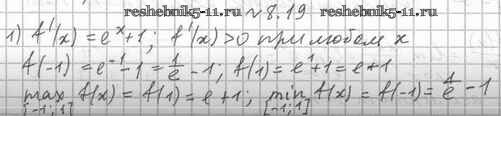 reshebnik5-11.ru №8.19 reshebnik5-11.ru
1) f'(x) = e^x + 1; f'(x) > 0 при любом x
f(-1) = e^{-1} - 1 = 1/e - 1; f(1) = e^1 + 1 = e + 1
max f(x) = f(1) = e + 1; min f(x) = f(-1) = 1/e - 1
[-1;1] [-1;1]